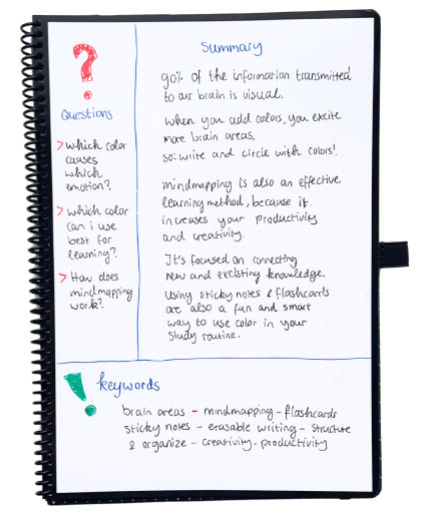 ?
Questions
> which color
causes
which
emotion?
> which color
can i use
best for
learning?
> How does
mindmapping
work?
Summary
90% of the information transmitted
to our brain is visual.
when you add colors, you excite
more brain areas,
so: write and circle with colors!
mindmapping is also an effective
learning method, because it
increases your productivity
and creativity.
It's focused on connecting
new and existing knowledge.
Using sticky notes & flashcards
are also a fun and smart
way to use color in your
study routine.
! keywords
brain areas - mindmapping - flashcards
sticky notes - erasable writing - structure
& organize - creativity - productivity